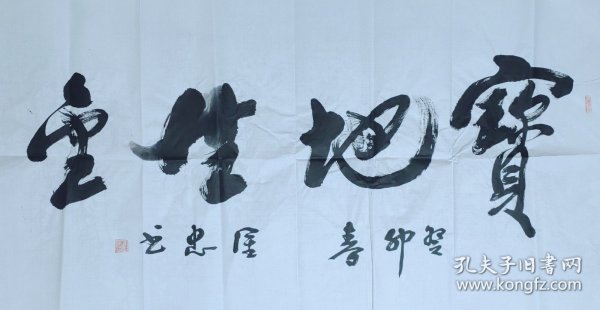 寶地生金
癸卯春 忠书
孔夫子旧书网
www.kongfz.com